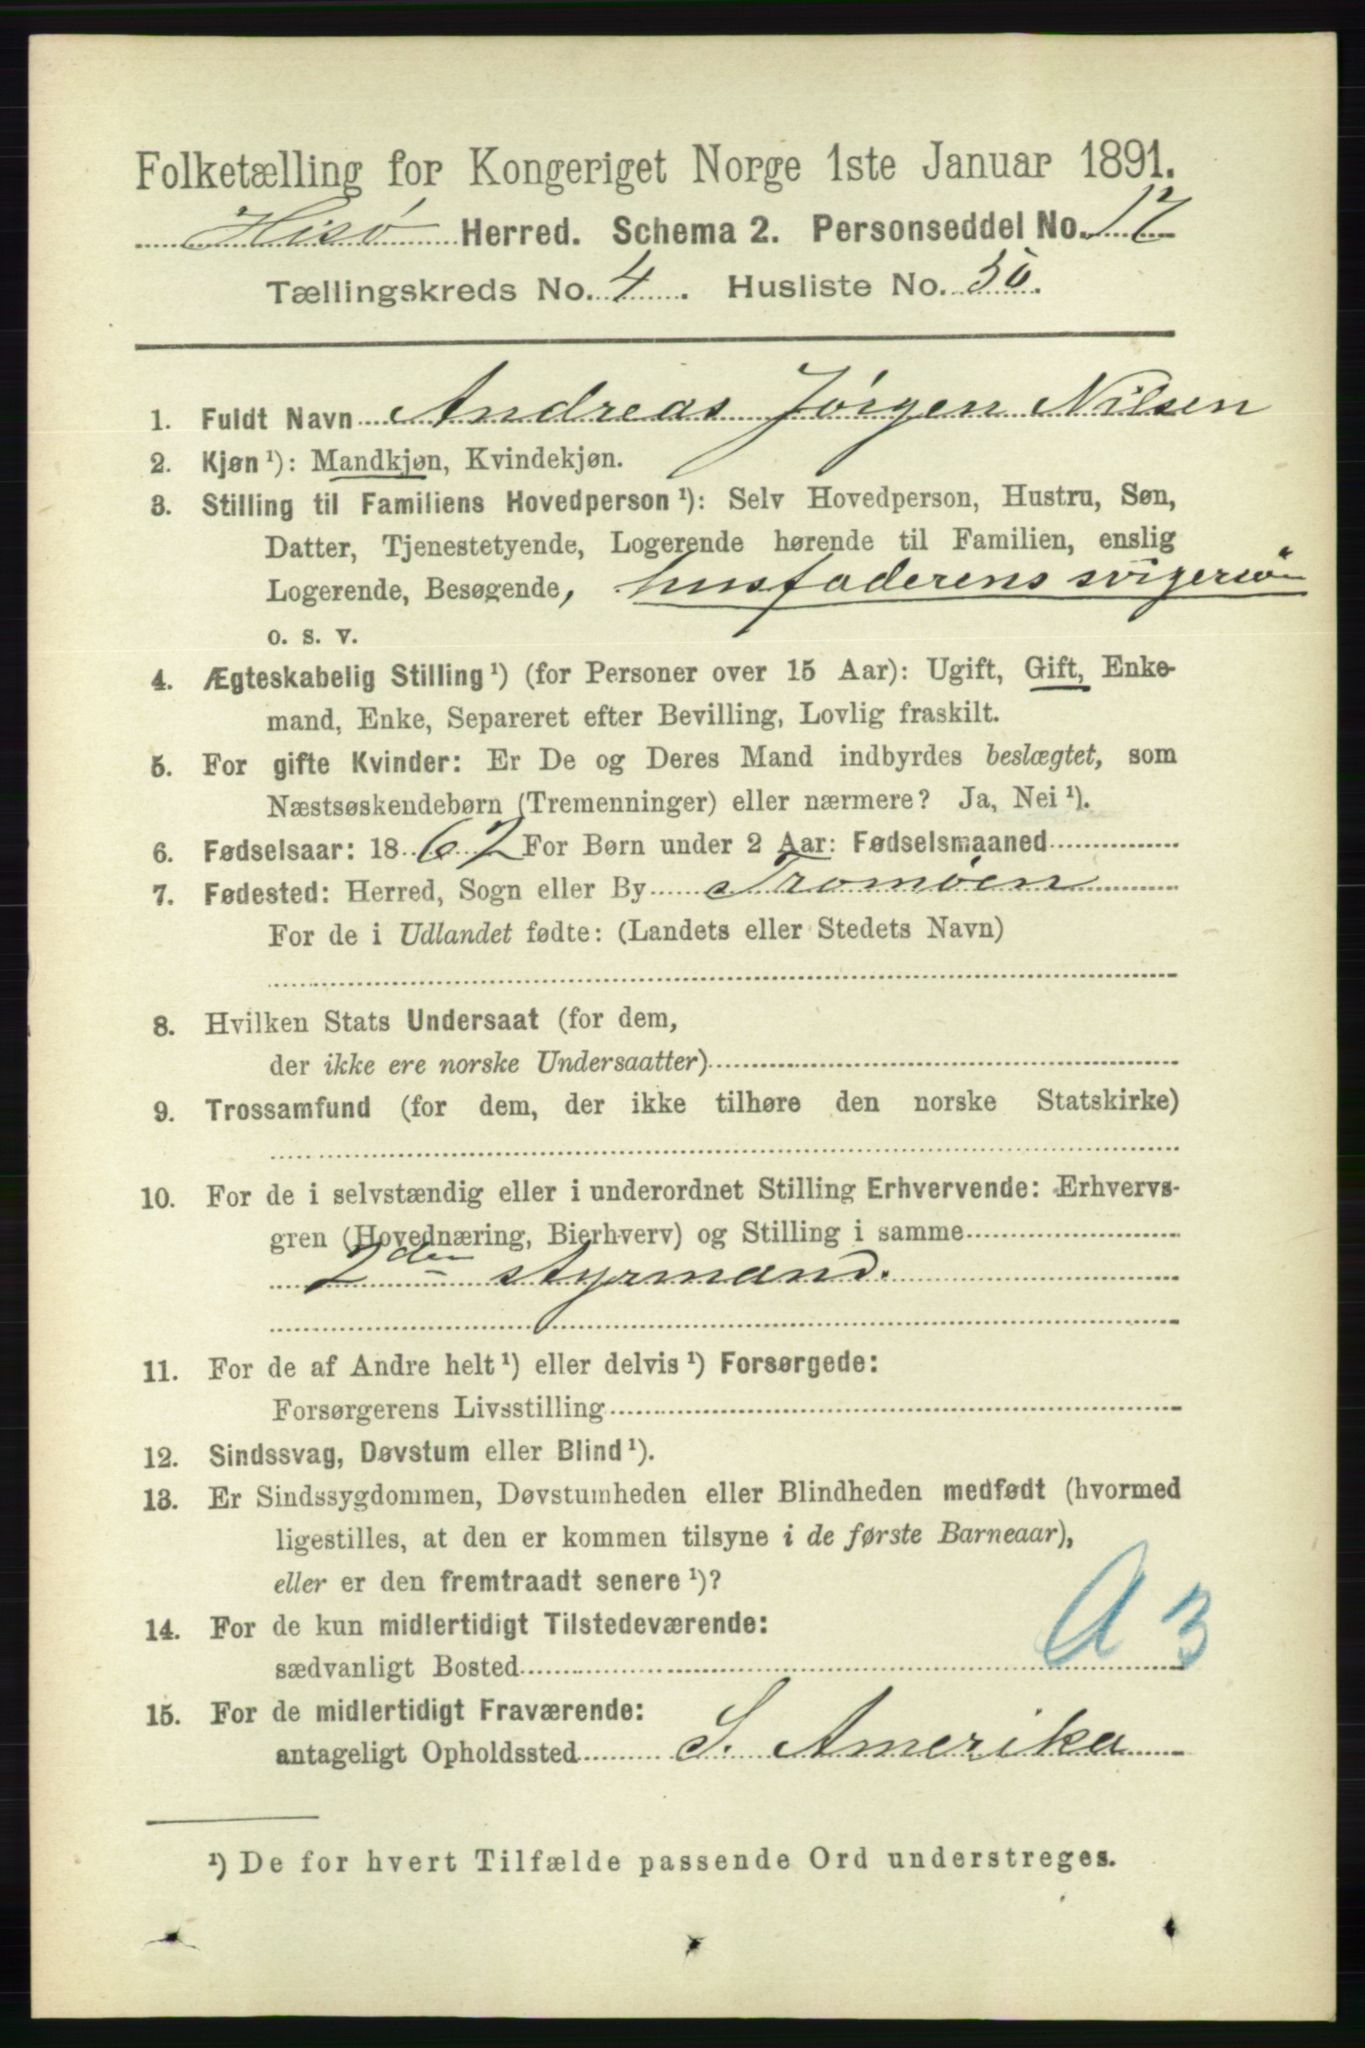 Folketælling for Kongeriget Norge 1ste Januar 1891.
Hisø Herred. Schema 2. Personseddel No. 17
Tællingskreds No. 4. Husliste No. 50.
1. Fuldt Navn Andreas Jörgen Nilsen
2. Kjøn ¹): Mandkjøn, Kvindekjøn.
3. Stilling til Familiens Hovedperson ¹): Selv Hovedperson, Hustru, Søn,
Datter, Tjenestetyende, Logerende hørende til Familien, enslig
Logerende, Besøgende, husfaderens svigersön
o. s. v.
4. Ægteskabelig Stilling ¹) (for Personer over 15 Aar): Ugift, Gift, Enke-
mand, Enke, Separeret efter Bevilling, Lovlig fraskilt.
5. For gifte Kvinder: Er De og Deres Mand indbyrdes beslægtet, som
Næstsøskendebørn (Tremenninger) eller nærmere? Ja, Nei ¹).
6. Fødselsaar: 1862 For Børn under 2 Aar: Fødselsmaaned
7. Fødested: Herred, Sogn eller By Tromöen
For de i Udlandet fødte: (Landets eller Stedets Navn)
8. Hvilken Stats Undersaat (for dem,
der ikke ere norske Undersaatter)
9. Trossamfund (for dem, der ikke tilhøre den norske Statskirke)
10. For de i selvstændig eller i underordnet Stilling Erhvervende: Erhvervs-
gren (Hovednæring, Bierhverv) og Stilling i samme
2den styrmand.
11. For de af Andre helt ¹) eller delvis ¹) Forsørgede:
Forsørgerens Livsstilling
12. Sindssvag, Døvstum eller Blind ¹).
13. Er Sindssygdommen, Døvstumheden eller Blindheden medfødt (hvormed
ligestilles, at den er kommen tilsyne i de første Barneaar),
eller er den fremtraadt senere ¹)?
A 3
14. For de kun midlertidigt Tilstedeværende:
sædvanligt Bosted
15. For de midlertidigt Fraværende:
antageligt Opholdssted S. Amerika
¹) De for hvert Tilfælde passende Ord understreges.